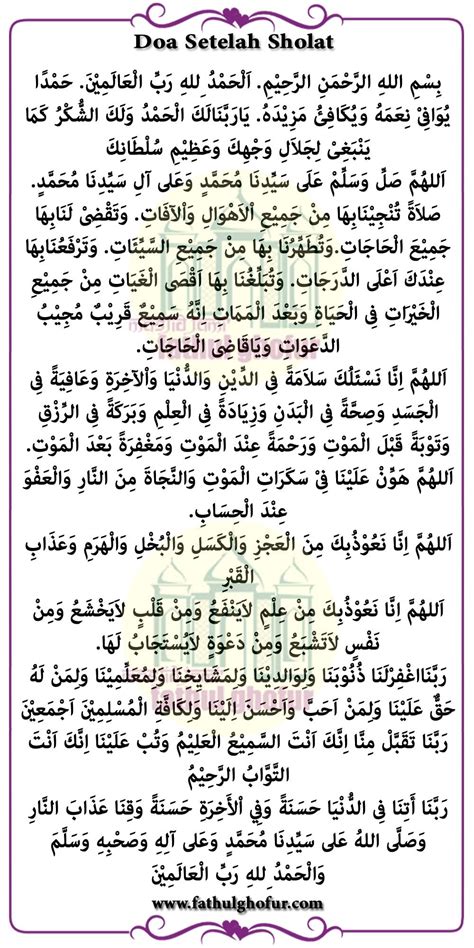 Doa Setelah Sholat
بِسْمِ اللهِ الرَّحْمَنِ الرَّحِيْمِ. اَلْحَمْدُ لِلهِ رَبِّ الْعَالَمِيْنَ. حَمْدًا
يُوَافِيْ نِعَمَهُ وَيُكَافِئُ مَزِيْدَهُ. يَارَبَّنَالَكَ الْحَمْدُ وَلَكَ الشُّكْرُ كَمَا
يَنْبَغِيْ لِجَلاَلِ وَجْهِكَ وَعَظِيْمِ سُلْطَانِكَ
اَللهُمَّ صَلِّ وَسَلِّمْ عَلَى سَيِّدِنَا مُحَمَّدٍ وَعَلى آلِ سَيِّدِنَا مُحَمَّدٍ.
صَلاَةً تُنْجِيْنَابِهَا مِنْ جَمِيْعِ الْاَهْوَالِ وَاْلآفَاتِ. وَتَقْضِيْ لَنَابِهَا
جَمِيْعَ الْحَاجَاتِ.وَتُطَهِّرُنَا بِهَا مِنْ جَمِيْعِ السَّيِّئَاتِ. وَتَرْفَعُنَابِهَا
عِنْدَكَ اَعْلَى الدَّرَجَاتِ. وَتُبَلِّغُنَا بِهَا اَقْصَى الْغَيَاتِ مِنْ جَمِيْعِ
الْخَيْرَاتِ فِي الْحَيَاةِ وَبَعْدَ الْمَمَاتِ اِنَّهُ سَمِيْعٌ قَرِيْبٌ مُجِيْبُ
الدَّعَوَاتِ وَيَاقَاضِيَ الْحَاجَاتِ.
اَللهُمَّ اِنَّا نَسْئَلُكَ سَلاَمَةً فِي الدِّيْنِ وَالدُّنْيَا وَاْلآخِرَةِ وَعَافِيَةً فِي
الْجَسَدِ وَصِحَّةً فِي الْبَدَنِ وَزِيَادَةً فِي الْعِلْمِ وَبَرَكَةً فِي الرِّزْقِ
وَتَوْبَةً قَبْلَ الْمَوْتِ وَرَحْمَةً عِنْدَ الْمَوْتِ وَمَغْفِرَةً بَعْدَ الْمَوْتِ.
اَللهُمَّ هَوِّنْ عَلَيْنَا فِيْ سَكَرَاتِ الْمَوْتِ وَالنَّجَاةَ مِنَ النَّارِ وَالْعَفْوَ
عِنْدَ الْحِسَابِ.
اَللهُمَّ اِنَّا نَعُوْذُبِكَ مِنَ الْعَجْزِ وَالْكَسَلِ وَالْبُخْلِ وَالْهَرَمِ وَعَذَابِ
الْقَبْرِ
اَللهُمَّ اِنَّا نَعُوْذُبِكَ مِنْ عِلْمٍ لاَيَنْفَعُ وَمِنْ قَلْبٍ لاَيَخْشَعُ وَمِنْ
نَفْسٍ لاَتَشْبَعُ وَمِنْ دَعْوَةٍ لاَيُسْتَجَابُ لَهَا.
رَبَّنَااغْفِرْلَنَا ذُنُوْبَنَا وَلِوَالِدِيْنَا وَلِمَشَايِخِنَا وَلِمُعَلِّمِيْنَا وَلِمَنْ لَهُ
حَقٌّ عَلَيْنَا وَلِمَنْ اَحَبَّ وَاَحْسَنَ اِلَيْنَا وَلِكَافَّةِ الْمُسْلِمِيْنَ اَجْمَعِيْنَ
رَبَّنَا تَقَبَّلْ مِنَّا اِنَّكَ اَنْتَ السَّمِيْعُ الْعَلِيْمُ وَتُبْ عَلَيْنَا اِنَّكَ اَنْتَ
التَّوَّابُ الرَّحِيْمُ
رَبَّنَا أَتِنَا فِي الدُّنْيَا حَسَنَةً وَفِي اْلأَخِرَةِ حَسَنَةً وَقِنَا عَذَابَ النَّارِ
وَصَلَّى اللهُ عَلى سَيِّدِنَا مُحَمَّدٍ وَعَلى آلِهِ وَصَحْبِهِ وَسَلَّمَ
وَالْحَمْدُ لِلهِ رَبِّ الْعَالَمِيْنَ
www.fathulghofur.com
masjid jami'
fathul ghofur
fathul ghofur